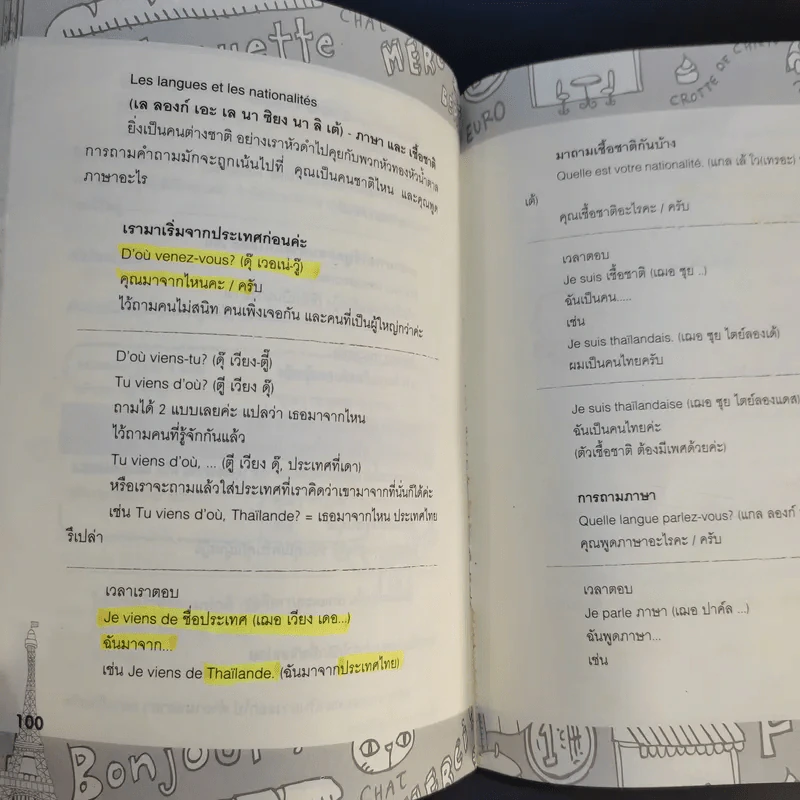 CHAT
uette
MERC
Les langues et les nationalités
(เล ลองก์ เอะ เล นา ซิยง นา ลิ เต้) - ภาษา และ เชื้อชาติ
ยิ่งเป็นคนต่างชาติ อย่างเราหัวดำไปคุยกับพวกหัวทองหัวน้ำตาล
การถามคำถามมักจะถูกเน้นไปที่ คุณเป็นคนชาติไหน และคุณพูด
ภาษาอะไร
เรามาเริ่มจากประเทศก่อนค่ะ
D'où venez-vous? (ดุ๊ เวอเน่-วู๊)
คุณมาจากไหนคะ / ครับ
ไว้ถามคนไม่สนิท คนเพิ่งเจอกัน และคนที่เป็นผู้ใหญ่กว่าค่ะ
D'où viens-tu? (ดุ๊ เวียง-ตู๊)
Tu viens d'où? (ตู เวียง ดุ๊)
ถามได้ 2 แบบเลยค่ะ แปลว่า เธอมาจากไหน
ไว้ถามคนที่รู้จักกันแล้ว
Tu viens d'où, ... (ตู เวียง ดุ๊, ประเทศที่เดา)
หรือเราจะถามแล้วใส่ประเทศที่เราคิดว่าเขามาจากที่นั่นก็ได้ค่ะ
เช่น Tu viens d'où, Thaïlande? = เธอมาจากไหน ประเทศไทย
รึเปล่า
เวลาเราตอบ
Je viens de ชื่อประเทศ (เฌอ เวียง เดอ...)
ฉันมาจาก...
เช่น Je viens de Thaïlande. (ฉันมาจากประเทศไทย)
100
BONJOUR
CHAT
EURO
CROTTE DE CHIEN
มาถามเชื้อชาติกันบ้าง
Quelle est votre nationalité. (แกล เล้ โว(เทรอะ)
เต้)
คุณเชื้อชาติอะไรคะ / ครับ
เวลาตอบ
Je suis เชื้อชาติ (เฌอ ซุย ..)
ฉันเป็นคน.....
เช่น
Je suis thaïlandais. (เฌอ ซุย ไตย์ลองเด้)
ผมเป็นคนไทยครับ
Je suis thaïlandaise (เฌอ ซุย ไตย์ลองแดส)
ฉันเป็นคนไทยค่ะ
(ตัวเชื้อชาติ ต้องมีเพศด้วยค่ะ)
การถามภาษา
Quelle langue parlez-vous? (แกล ลองก์
คุณพูดภาษาอะไรคะ / ครับ
เวลาตอบ
Je parle ภาษา (เฌอ ปาค์ล ...)
ฉันพูดภาษา...
เช่น